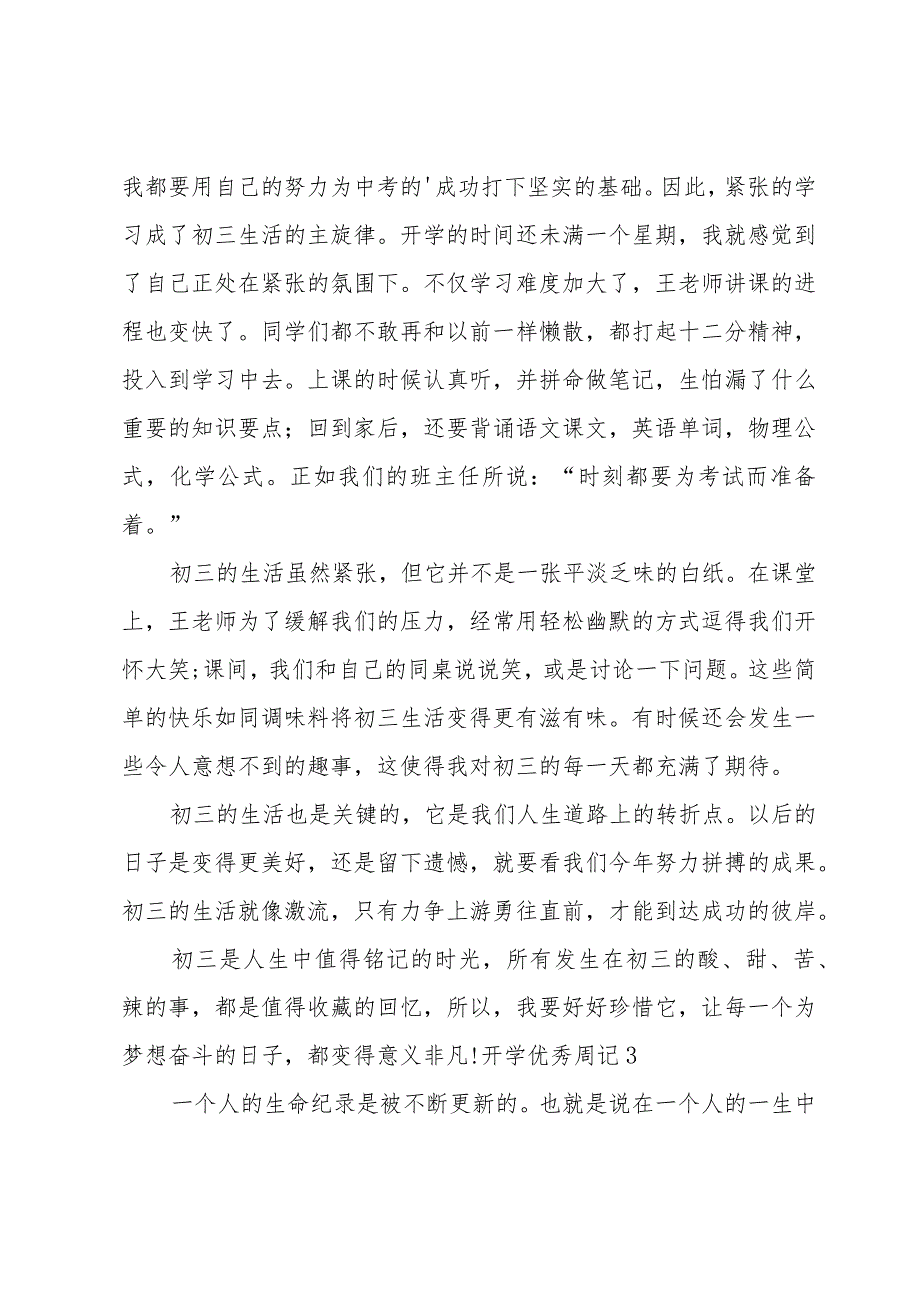 我都要用自己的努力为中考的'成功打下坚实的基础。因此，紧张的学
习成了初三生活的主旋律。开学的时间还未满一个星期，我就感觉到
了自己正处在紧张的氛围下。不仅学习难度加大了，王老师讲课的进
程也变快了。同学们都不敢再和以前一样懒散，都打起十二分精神，
投入到学习中去。上课的时候认真听，并拼命做笔记，生怕漏了什么
重要的知识要点；回到家后，还要背诵语文课文，英语单词，物理公
式，化学公式。正如我们的班主任所说：“时刻都要为考试而准备
着。”
初三的生活虽然紧张，但它并不是一张平淡乏味的白纸。在课堂
上，王老师为了缓解我们的压力，经常用轻松幽默的方式逗得我们开
怀大笑;课间，我们和自己的同桌说说笑，或是讨论一下问题。这些简
单的快乐如同调味料将初三生活变得更有滋有味。有时候还会发生一
些令人意想不到的趣事，这使得我对初三的每一天都充满了期待。
初三的生活也是关键的，它是我们人生道路上的转折点。以后的
日子是变得更美好，还是留下遗憾，就要看我们今年努力拼搏的成果。
初三的生活就像激流，只有力争上游勇往直前，才能到达成功的彼岸。
初三是人生中值得铭记的时光，所有发生在初三的酸、甜、苦、
辣的事，都是值得收藏的回忆，所以，我要好好珍惜它，让每一个为
梦想奋斗的日子，都变得意义非凡!开学优秀周记3
一个人的生命纪录是被不断更新的。也就是说在一个人的一生中